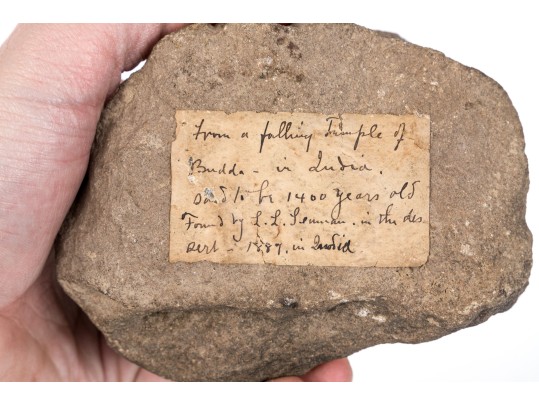 From a falling Temple of
Budda - in India.
Said to be 1400 years old
Found by L. L. Seaman. in the des
sert - 1887. in India